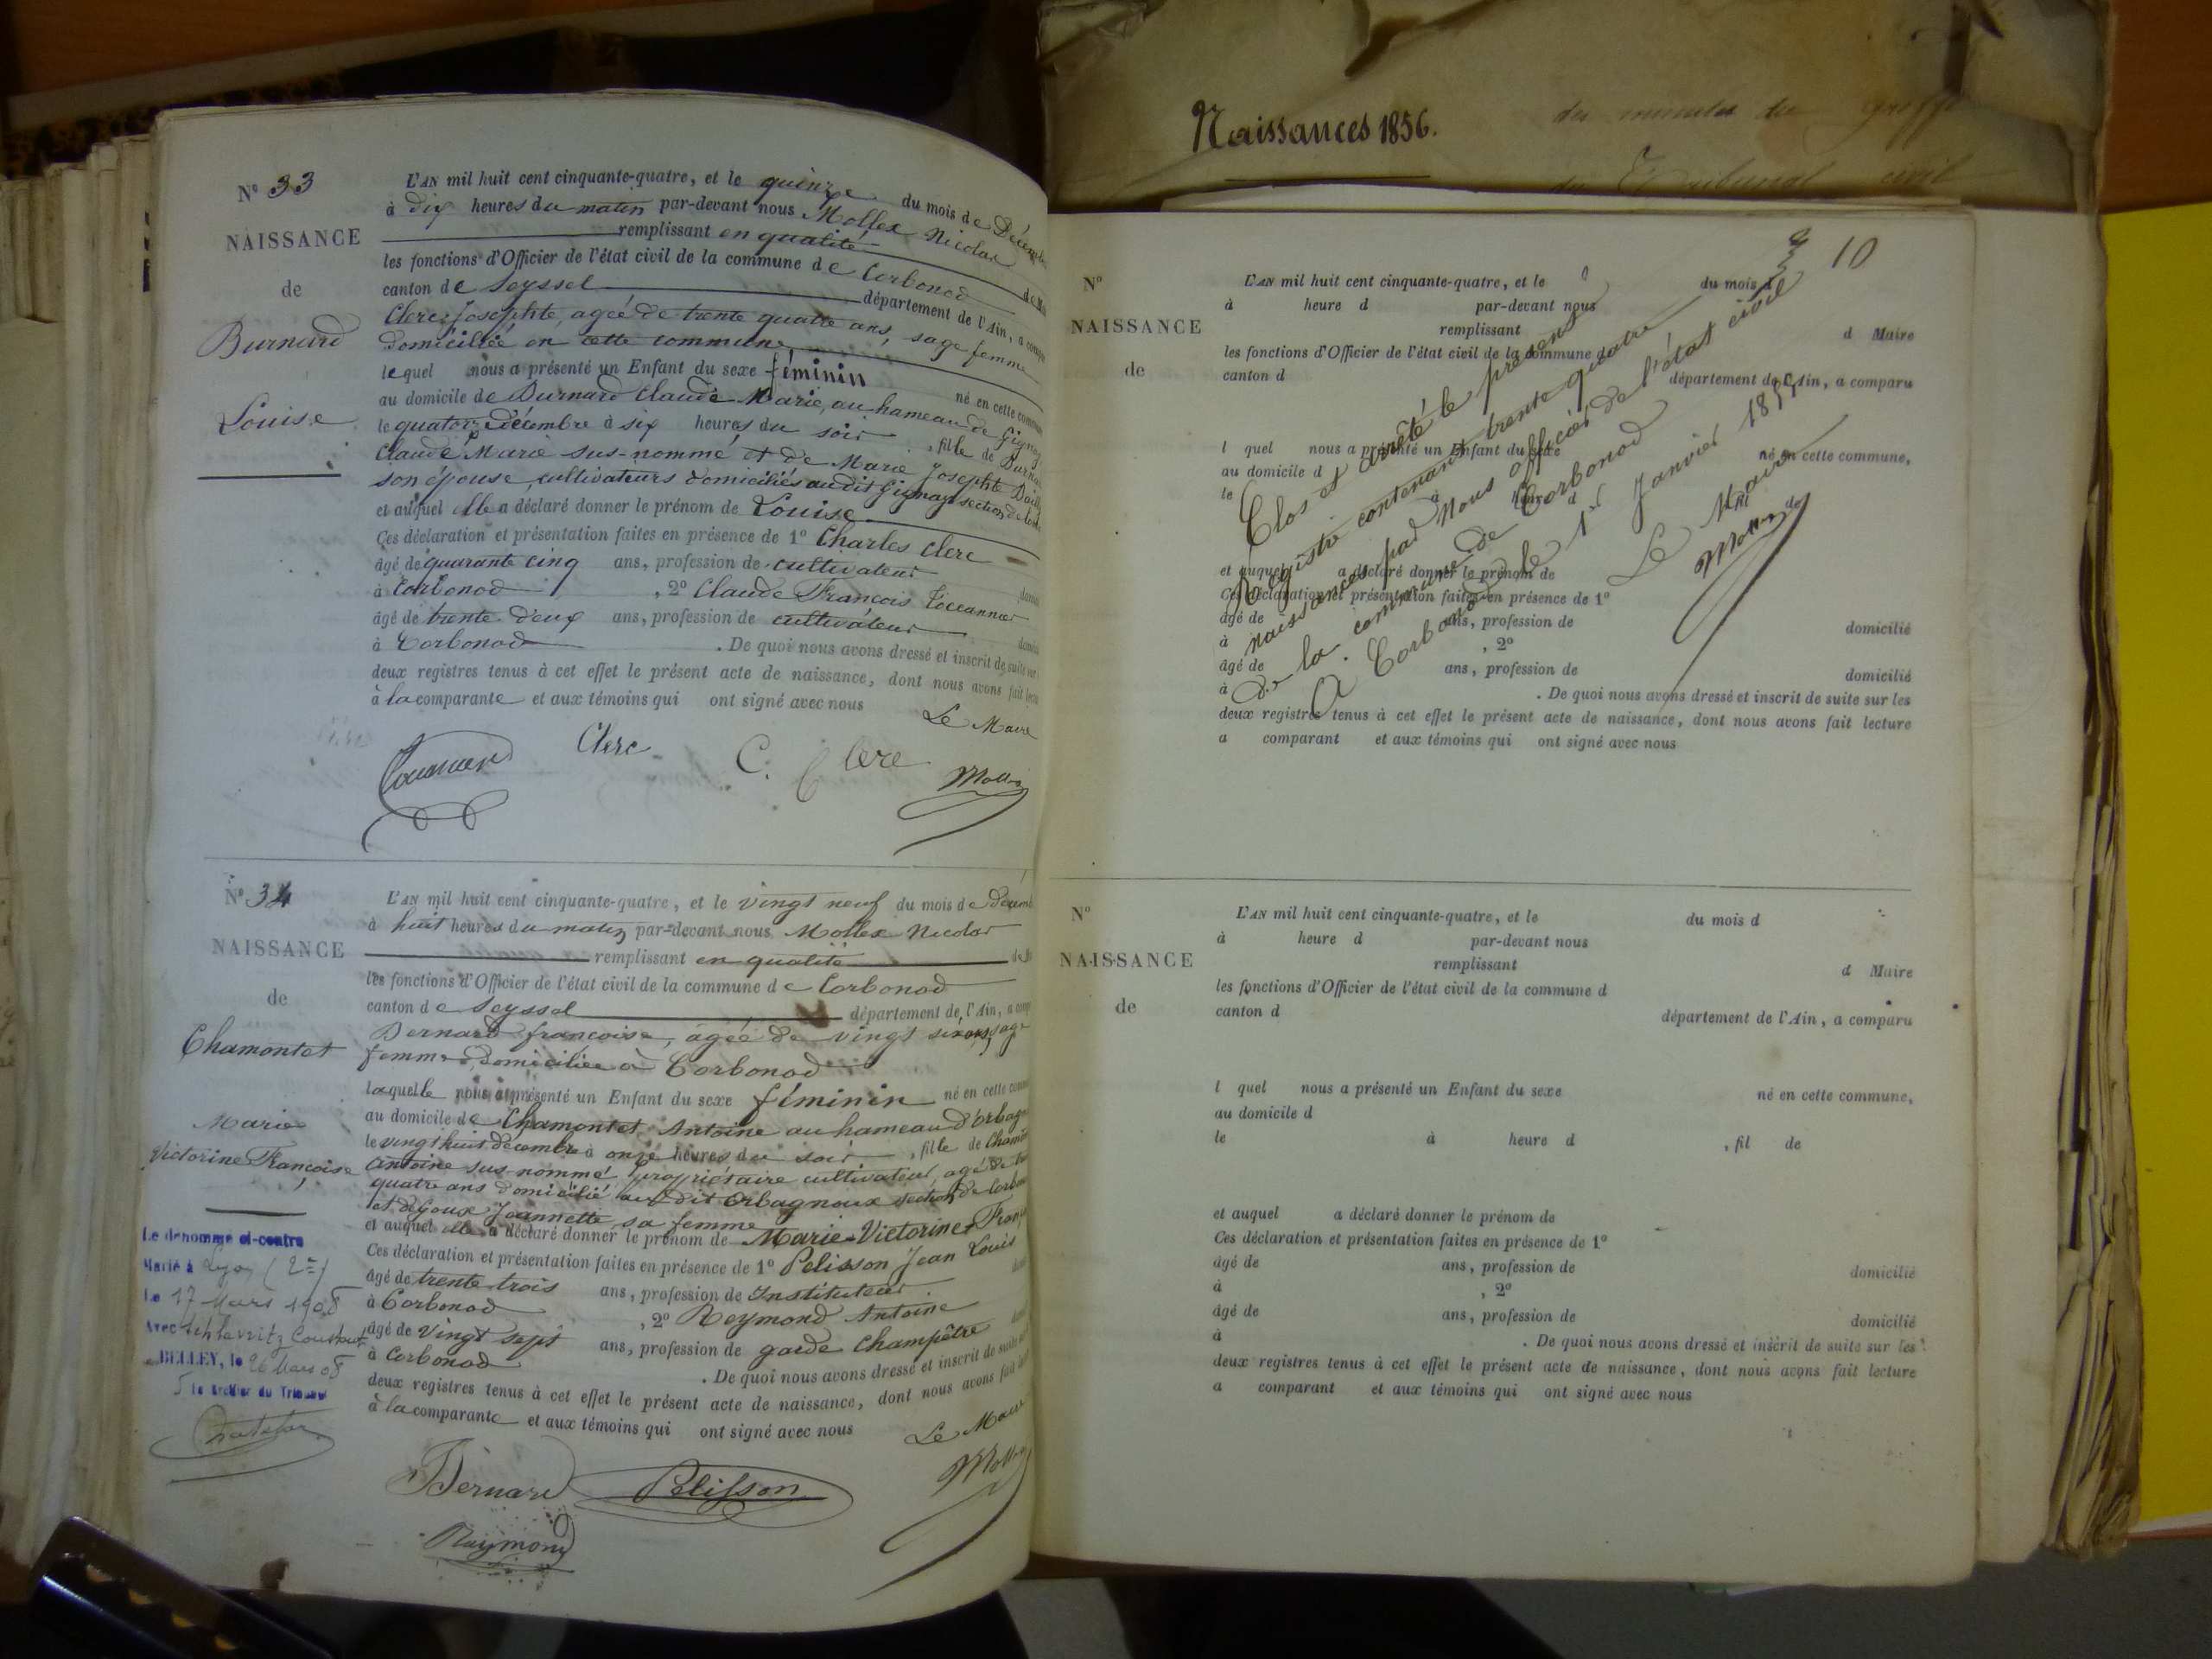 Nº 33
NAISSANCE
de
Burnard
Louise
L'AN mil huit cent cinquante-quatre, et le quinze du mois de Décembre
à dix heures du matin par-devant nous Mollex Nicolas
remplissant en qualité de M
les fonctions d'Officier de l'état civil de la commune de Corbonod
canton de Seyssel département de l'Ain, a compa
Clerc Josephte, agée de trente quatre ans, sage femme
domiciliée en cette commune
lequel nous a présenté un Enfant du sexe féminin né en cette commun
au domicile de Burnard Claude Marie, au hameau de Gigna
le quatorze décembre à six heures du soir, fille de Burna
Claude Marie sus-nommé et de Marie Josephte
son épouse, cultivateurs domiciliés audit Gignay section de
et auquel elle a déclaré donner le prénom de Louise
Ces déclaration et présentation faites en présence de 1º Charles Clerc
âgé de quarante cinq ans, profession de cultivateur
à Corbonod, 2º Claude François
âgé de trente deux ans, profession de cultivateur
à Corbonod. De quoi nous avons dressé et inscrit de suite sur
deux registres tenus à cet effet le présent acte de naissance, dont nous avons fait lect
à la comparante et aux témoins qui ont signé avec nous
Le Maire
Clerc C. Clerc Mollex
Nº 34
NAISSANCE
de
Chamontet
Marie
Victorine Françoise
L'AN mil huit cent cinquante-quatre, et le vingt neuf du mois de décemb
à huit heures du matin par-devant nous Mollex Nicolas
remplissant en qualité de M
les fonctions d'Officier de l'état civil de la commune de Corbonod
canton de Seyssel département de l'Ain, a comp
Bernard françoise, agée de vingt six ans, sage
femme, domiciliée à Corbonod
laquelle nous a présenté un Enfant du sexe féminin né en cette comm
au domicile de Chamontet Antoine au hameau d'Orbagn
le vingt huit décembre à onze heures du soir, fille de Chamon
Antoine sus-nommé, propriétaire cultivateur, agé de
quatre ans domicilié audit Orbagnoux section de Corbon
et Dejoux Jeannette, sa femme
et auquel elle a déclaré donner le prénom de Marie-Victorine Franç
Ces déclaration et présentation faites en présence de 1º Pelisson Jean Louis
âgé de trente trois ans, profession de Instituteur
à Corbonod, 2º Reymond Antoine
âgé de vingt sept ans, profession de garde champêtre
à Corbonod. De quoi nous avons dressé et inscrit de suite
deux registres tenus à cet effet le présent acte de naissance, dont nous avons fait
à la comparante et aux témoins qui ont signé avec nous
Le Maire
Bernard Pelisson Mollex
Raymond
Le dénommé ci-contre
Marié à Lyon (2e)
Le 17 Mars 1908
Avec
BELLEY, le 26 Mars 08
Le Greffier du Tribunal
Naissances 1856.
des minutes du greffe
du Tribunal civil
10
Nº
NAISSANCE
de
L'AN mil huit cent cinquante-quatre, et le du mois d
à heure d par-devant nous
remplissant d Maire
les fonctions d'Officier de l'état civil de la commune d
canton d département de l'Ain, a comparu
l quel nous a présenté un Enfant du sexe né en cette commune,
au domicile d
le à heure d
et auquel a déclaré donner le prénom de
Ces déclaration et présentation faites en présence de 1º
âgé de ans, profession de domicilié
à , 2º
âgé de ans, profession de domicilié
à . De quoi nous avons dressé et inscrit de suite sur les
deux registres tenus à cet effet le présent acte de naissance, dont nous avons fait lecture
a comparant et aux témoins qui ont signé avec nous
Clos et arrêté le présent
Registre contenant trente quatre
naissances par Nous officier de l'état civil
de la commune de Corbonod
A Corbonod le 1er Janvier 1855
Le Maire
Mollex
Nº
NAISSANCE
de
L'AN mil huit cent cinquante-quatre, et le du mois d
à heure d par-devant nous
remplissant d Maire
les fonctions d'Officier de l'état civil de la commune d
canton d département de l'Ain, a comparu
l quel nous a présenté un Enfant du sexe né en cette commune,
au domicile d
le à heure d , fil de
et auquel a déclaré donner le prénom de
Ces déclaration et présentation faites en présence de 1º
âgé de ans, profession de domicilié
à , 2º
âgé de ans, profession de domicilié
à . De quoi nous avons dressé et inscrit de suite sur les
deux registres tenus à cet effet le présent acte de naissance, dont nous avons fait lecture
a comparant et aux témoins qui ont signé avec nous